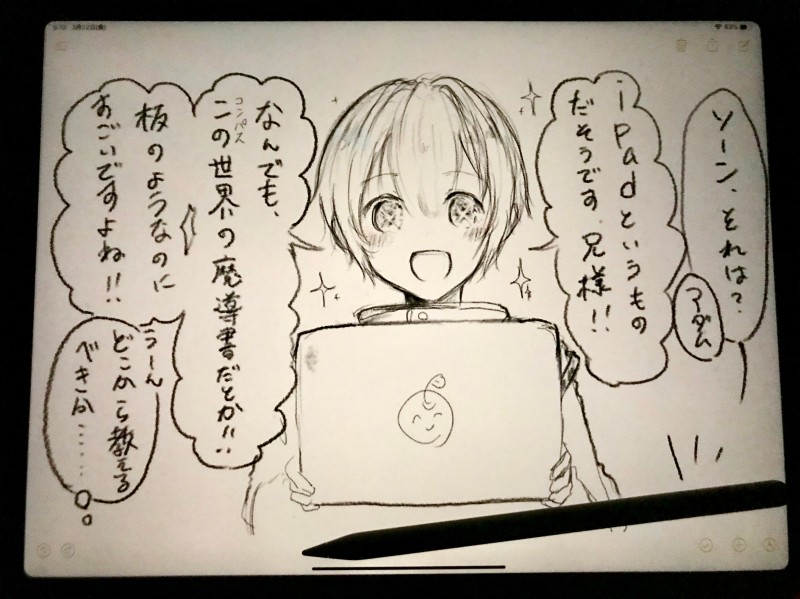 ソーン、それは?
アダム
iPadというもの
だそうです、兄様!!
なんでも、
この世界の魔導書だとか!!
コンパス
板のようなのに
すごいですよね!!
うーん
どこから教える
べきか……